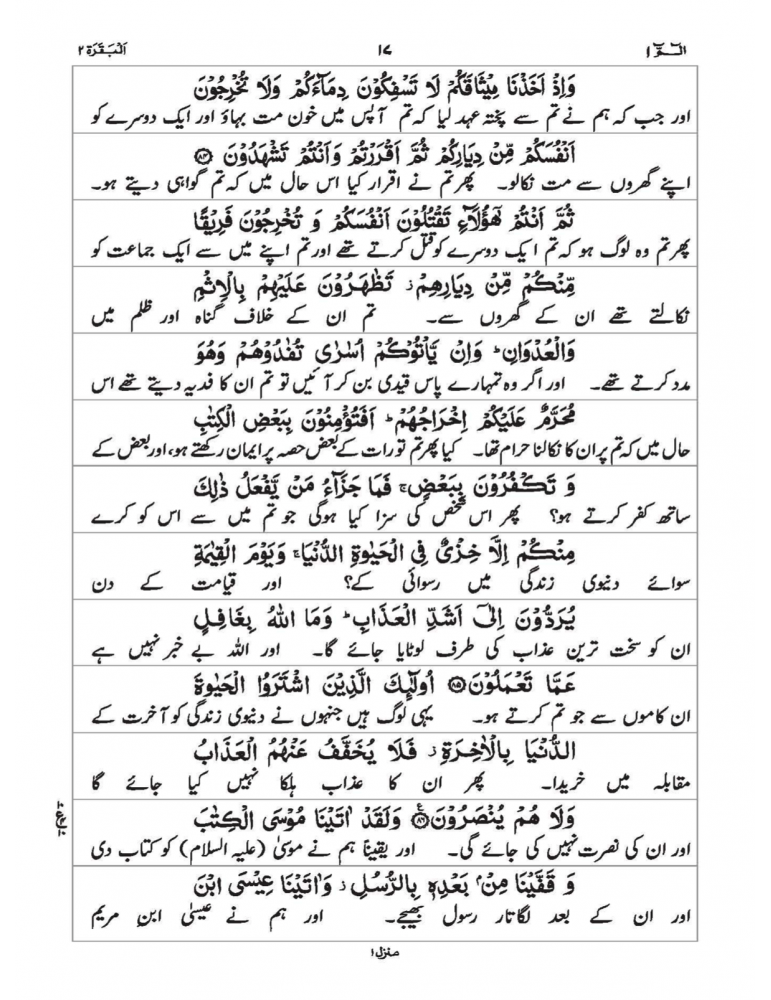 الٓـمّٓ ١ ١٧ اَلْبَقَرَة ٢
وَاِذْ اَخَذْنَا مِیْثَاقَكُمْ لَا تَسْفِكُوْنَ دِمَآءَكُمْ وَلَا تُخْرِجُوْنَ
اور جب کہ ہم نے تم سے پختہ عہد لیا کہ تم آپس میں خون مت بہاؤ اور ایک دوسرے کو
اَنْفُسَكُمْ مِّنْ دِیَارِكُمْ ثُمَّ اَقْرَرْتُمْ وَاَنْتُمْ تَشْهَدُوْنَ ۝۸۴
اپنے گھروں سے مت نکالو۔ پھر تم نے اقرار کیا اس حال میں کہ تم گواہی دیتے ہو۔
ثُمَّ اَنْتُمْ هٰۤؤُلَآءِ تَقْتُلُوْنَ اَنْفُسَكُمْ وَ تُخْرِجُوْنَ فَرِیْقًا
پھر تم وہ لوگ ہو کہ تم ایک دوسرے کو قتل کرتے تھے اور تم اپنے میں سے ایک جماعت کو
مِّنْكُمْ مِّنْ دِیَارِهِمْ ؗ تَظٰهَرُوْنَ عَلَیْهِمْ بِالْاِثْمِ
نکالتے تھے ان کے گھروں سے۔ تم ان کے خلاف گناہ اور ظلم میں
وَالْعُدْوَانِ ؕ وَاِنْ یَّاْتُوْكُمْ اُسٰرٰی تُفٰدُوْهُمْ وَهُوَ
مدد کرتے تھے۔ اور اگر وہ تمہارے پاس قیدی بن کر آئیں تو تم ان کا فدیہ دیتے تھے اس
مُحَرَّمٌ عَلَیْكُمْ اِخْرَاجُهُمْ ؕ اَفَتُؤْمِنُوْنَ بِبَعْضِ الْكِتٰبِ
حال میں کہ تم پر ان کا نکالنا حرام تھا۔ کیا پھر تم تورات کے بعض حصہ پر ایمان رکھتے ہو، اور بعض کے
وَ تَكْفُرُوْنَ بِبَعْضٍ ۚ فَمَا جَزَآءُ مَنْ یَّفْعَلُ ذٰلِكَ
ساتھ کفر کرتے ہو؟ پھر اس شخص کی سزا کیا ہوگی جو تم میں سے اس کو کرے
مِنْكُمْ اِلَّا خِزْیٌ فِی الْحَیٰوةِ الدُّنْیَا ۚ وَیَوْمَ الْقِیٰمَةِ
سوائے دنیوی زندگی میں رسوائی کے؟ اور قیامت کے دن
یُرَدُّوْنَ اِلٰۤی اَشَدِّ الْعَذَابِ ؕ وَمَا اللّٰهُ بِغَافِلٍ
ان کو سخت ترین عذاب کی طرف لوٹایا جائے گا۔ اور اللہ بے خبر نہیں ہے
عَمَّا تَعْمَلُوْنَ ۝۸۵ اُولٰٓئِكَ الَّذِیْنَ اشْتَرَوُا الْحَیٰوةَ
ان کاموں سے جو تم کرتے ہو۔ یہی لوگ ہیں جنہوں نے دنیوی زندگی کو آخرت کے
الدُّنْیَا بِالْاٰخِرَةِ ؗ فَلَا یُخَفَّفُ عَنْهُمُ الْعَذَابُ
مقابلہ میں خریدا۔ پھر ان کا عذاب ہلکا نہیں کیا جائے گا
وَلَا هُمْ یُنْصَرُوْنَ ۝۸۶ وَلَقَدْ اٰتَیْنَا مُوْسَی الْكِتٰبَ
اور ان کی نصرت نہیں کی جائے گی۔ اور یقیناً ہم نے موسیٰ (علیہ السلام) کو کتاب دی
وَ قَفَّیْنَا مِنْۢ بَعْدِهٖ بِالرُّسُلِ ؗ وَاٰتَیْنَا عِیْسَی ابْنَ
اور ان کے بعد لگاتار رسول بھیجے۔ اور ہم نے عیسیٰ ابنِ مریم
منزل ١